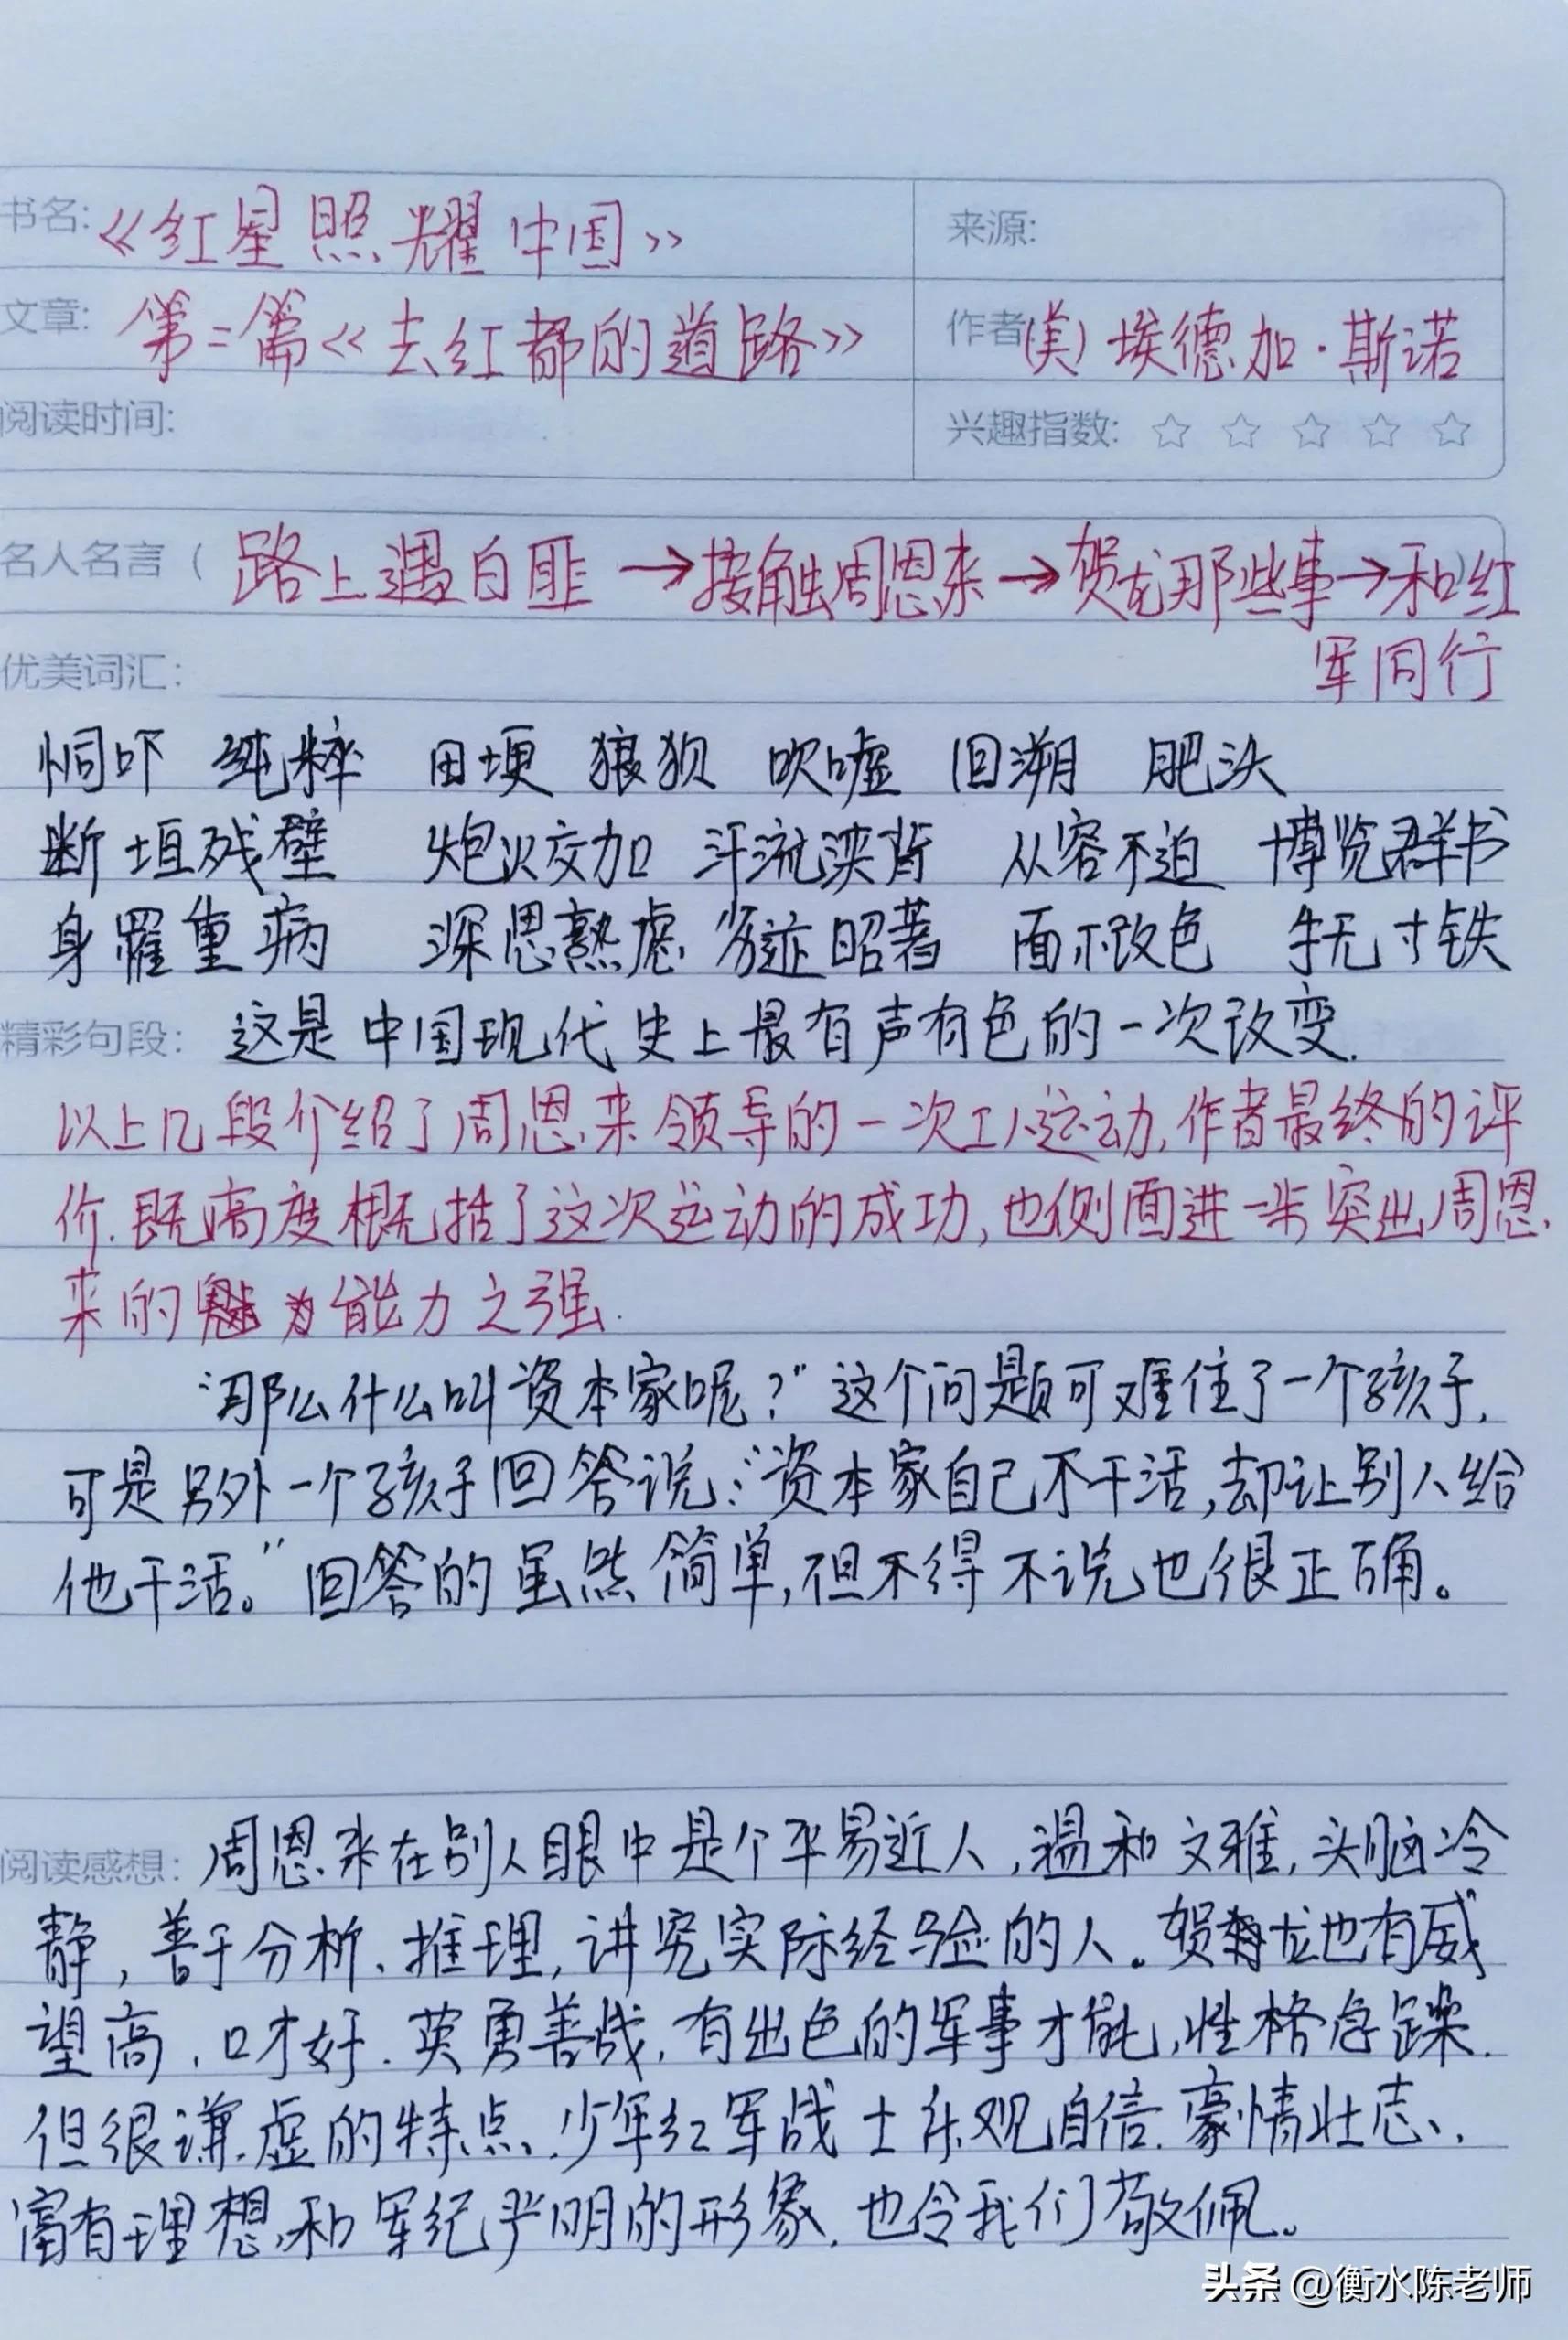 书名:《红星照耀中国》
来源:
文章:第二篇《去红都的道路》
作者(美)埃德加·斯诺
阅读时间:
兴趣指数:☆ ☆ ☆ ☆ ☆
名人名言(路上遇白匪→接触周恩来→贺龙那些事→和红
军同行
优美词汇:
恫吓 纯粹 田埂 狼狈 吹嘘 回溯 肥沃
断垣残壁 炮火交加 汗流浃背 从容不迫 博览群书
身罹重病 深思熟虑 劣迹昭著 面不改色 手无寸铁
精彩句段:这是中国现代史上最有声有色的一次改变.
以上几段介绍了周恩来领导的一次工人运动,作者最终的评
价.既高度概括了这次运动的成功,也侧面进一步突出周恩
来的 能力之强.
“那么什么叫资本家呢?”这个问题可难住了一个孩子,
可是另外一个孩子回答说:“资本家自己不干活,却让别人给
他干活。”回答的虽然简单,但不得不说也很正确。
阅读感想:周恩来在别人眼中是个平易近人,温和文雅,头脑冷
静,善于分析、推理,讲究实际经验的人。贺龙也有威
望高、口才好.英勇善战,有出色的军事才能,性格急躁.
但很谦虚的特点.少年红军战士乐观自信.豪情壮志、
富有理想、和军纪严明的形象.也令我们敬佩。
头条 @衡水陈老师